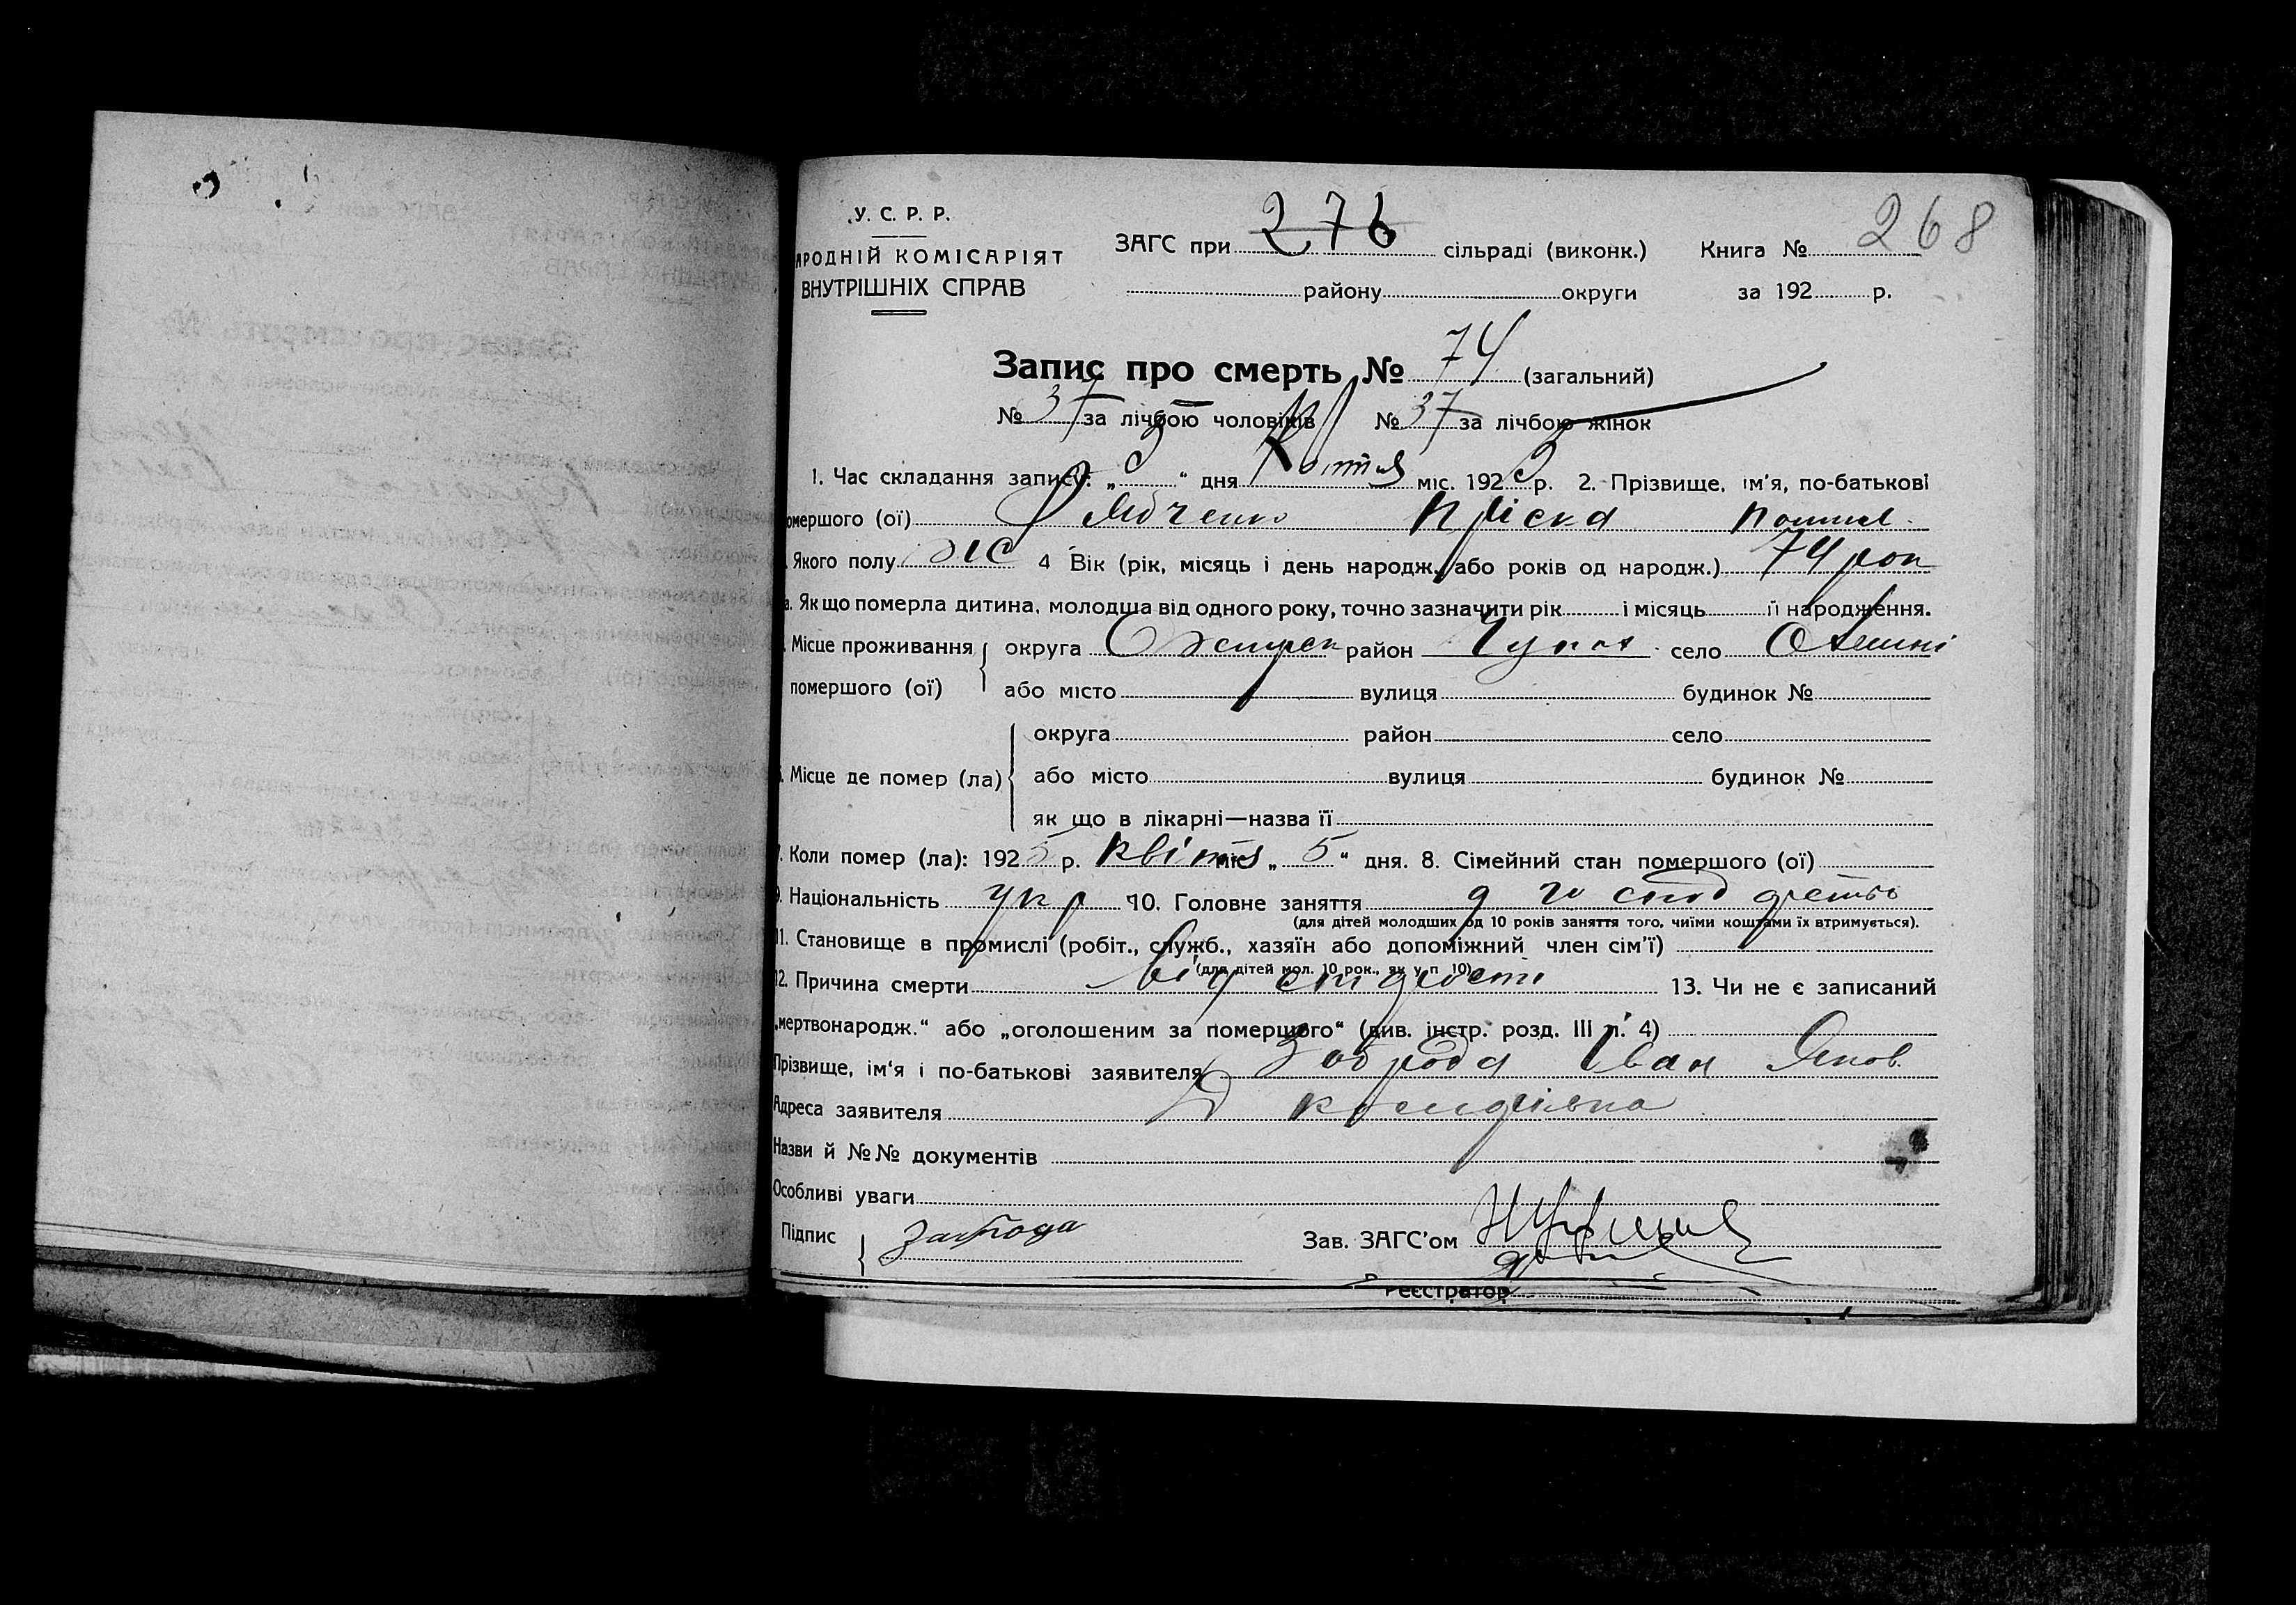 У. С. Р. Р.
РОДНІЙ КОМІСАРІЯТ
ВНУТРІШНІХ СПРАВ
ЗАГС при 276 сільраді (виконк.) Книга № 268
району округи за 192 р.
Запис про смерть № 74 (загальний)
№ 37 за лічбою чоловіків № 37 за лічбою жінок
1. Час складання запису: „ “ дня міс. 192 р. 2. Прізвище, ім'я, по-батькові
омершого (ої) Пріска
Якого полу жіс 4 Вік (рік, місяць і день народж. або років од народж.) 74 рок
а. Як що померла дитина, молодша від одного року, точно зазначити рік і місяць її народження.
Місце проживання округа Охтирск район Чупах село Олешні
помершого (ої) або місто вулиця будинок №
округа район село
Місце де помер (ла) або місто вулиця будинок №
як що в лікарні—назва її
7. Коли помер (ла): 192 5 р. квітня міс „ 5 “ дня. 8. Сімейний стан помершого (ої)
9. Національність укр 10. Головне заняття
(для дітей молодших од 10 років заняття того, чиїми коштами їх втримується).
11. Становище в промислі (робіт., служб., хазяїн або допоміжний член сім'ї)
(для дітей мол. 10 рок., як у п 10)
12. Причина смерти від старости 13. Чи не є записаний
„мертвонародж.“ або „оголошеним за помершого“ (див. інстр. розд. III п. 4)
Прізвище, ім'я і по-батькові заявителя Заброда Іван Яков.
Адреса заявителя
Назви й №№ документів
Особливі уваги
Підпис Заброда Зав. ЗАГС'ом
Реєстратор